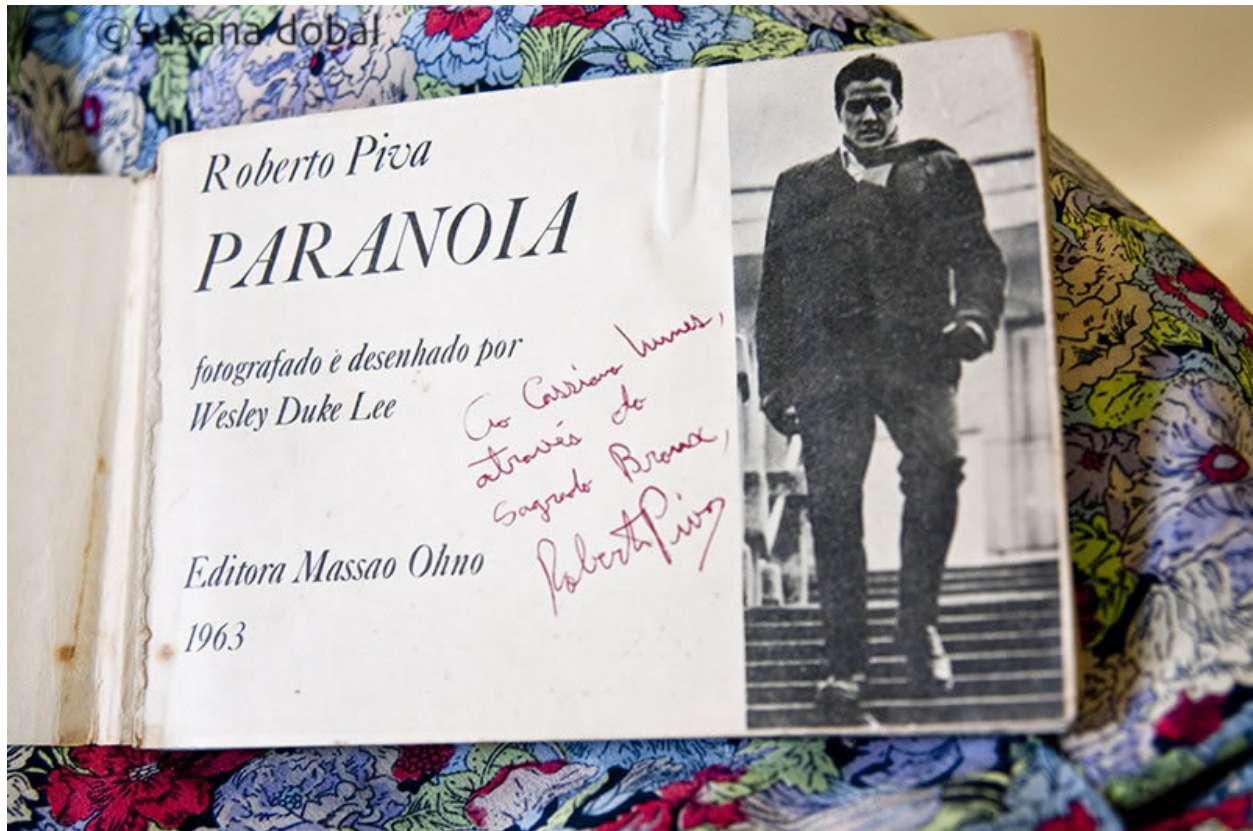 ©susana dobal
Roberto Piva
PARANOIA
fotografado e desenhado por
Wesley Duke Lee
Ao Cassiano Nunes,
através do
sagrado Bronx,
Roberto Piva
Editora Massao Ohno
1963